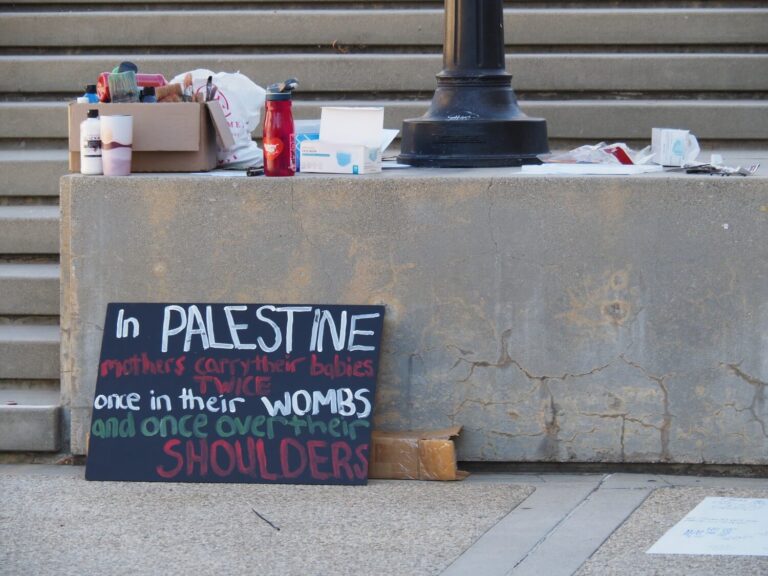 In PALESTINE
mothers carry their babies
TWICE
once in their WOMBS
and once over their
SHOULDERS